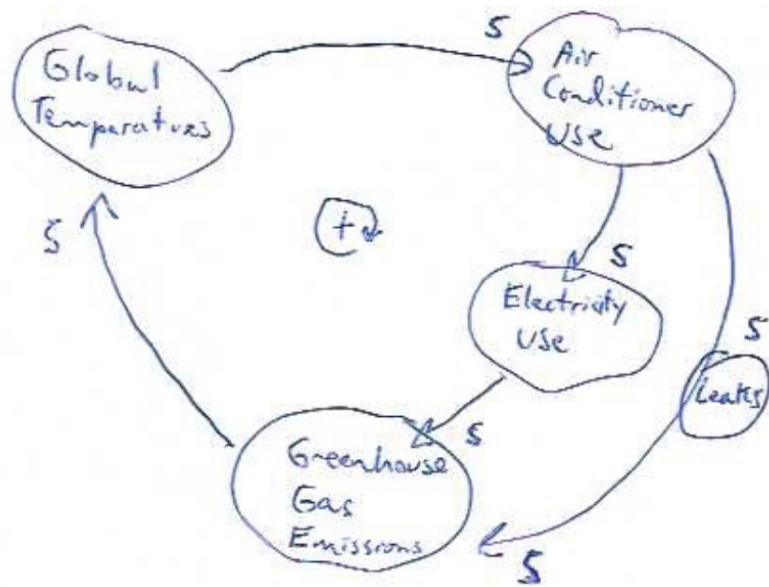 S
Global
Temperatures
Air
Conditioner
Use
S
+
S
Electricity
Use
S
Leaks
S
Greenhouse
Gas
Emissions
S